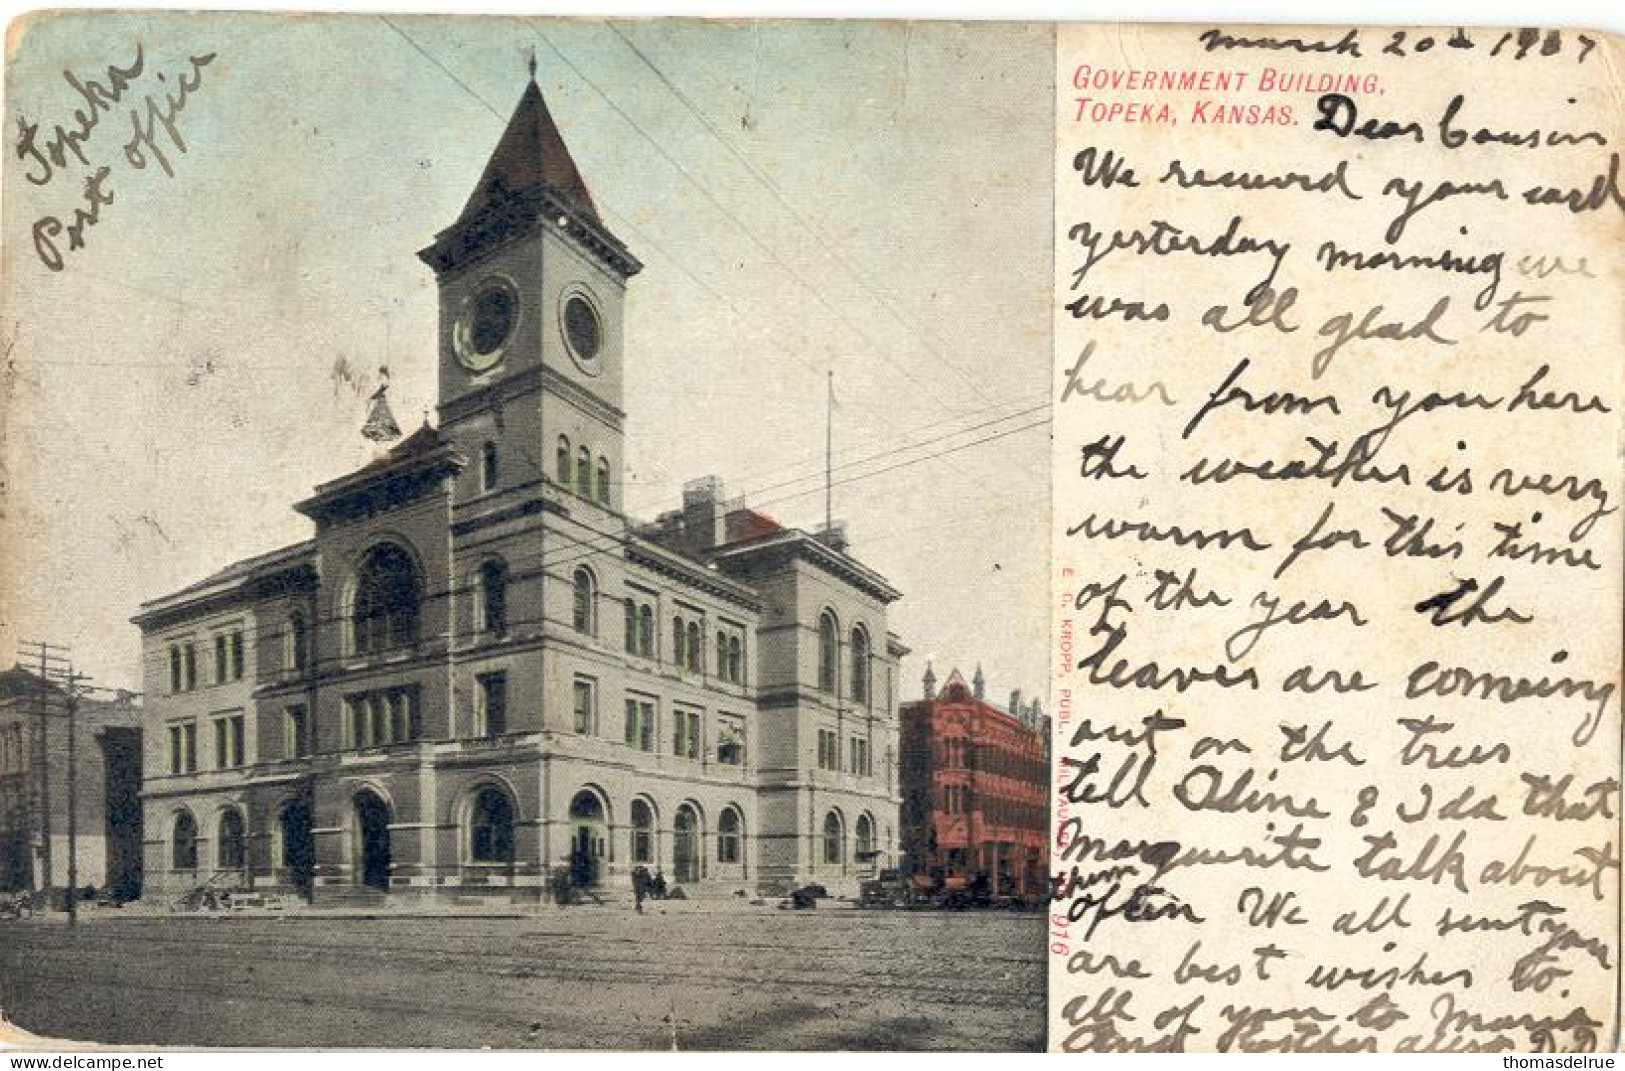 Topeka
Post offici
march 20th 1907
GOVERNMENT BUILDING,
TOPEKA, KANSAS.
Dear Cousin
We recieved your card
yesterday morning we
was all glad to
hear from you here
the weather is very
warm for this time
of the year the
leaves are comeing
out on the trees
tell Oline & Ida that
Marguerite talk about
them
often We all sent you
are best wishes to
all of you to Maria
And Kosther aleso D.D
E. G. KROPP, PUBL., MILWAUKEE 916
thomasdelrue
delcampe.net